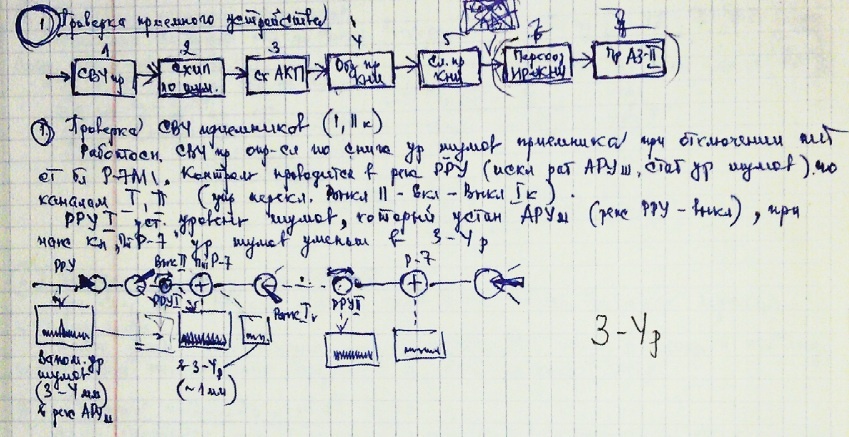 1. Проверка приемного устройства
1 2 3 4 5 7
СВЧ пр
СХИП по шум.
Ст АКП
Общ пр КНИ
Сл. пр КНИ
КНИ
Пр АЗ-II
1. Проверка СВЧ приемников (I, II к)
Работосп. СВЧ пр опр-ся по сниж ур шумов приемника при отключении пит
от бл Р-7М1. Контроль проводится в реж РРУ (искл рат АРУш, стат ур шумов) по
каналам I, II (перекл. Выкл II - Вкл - Выкл I к).
РРУ I уст. уровень шумов, который устан АРУш (реж РРУ - выкл), при
наж кн „Пит Р-7" ур шумов уменьш в 3-4р
РРУ Выкл II Пит Р-7 Р-7
РРУ I Выкл I к РРУ II
Запом. ур
шумов
(3-4 мм)
в реж АРУш
в 3-4р
(~1мм)
3-4р